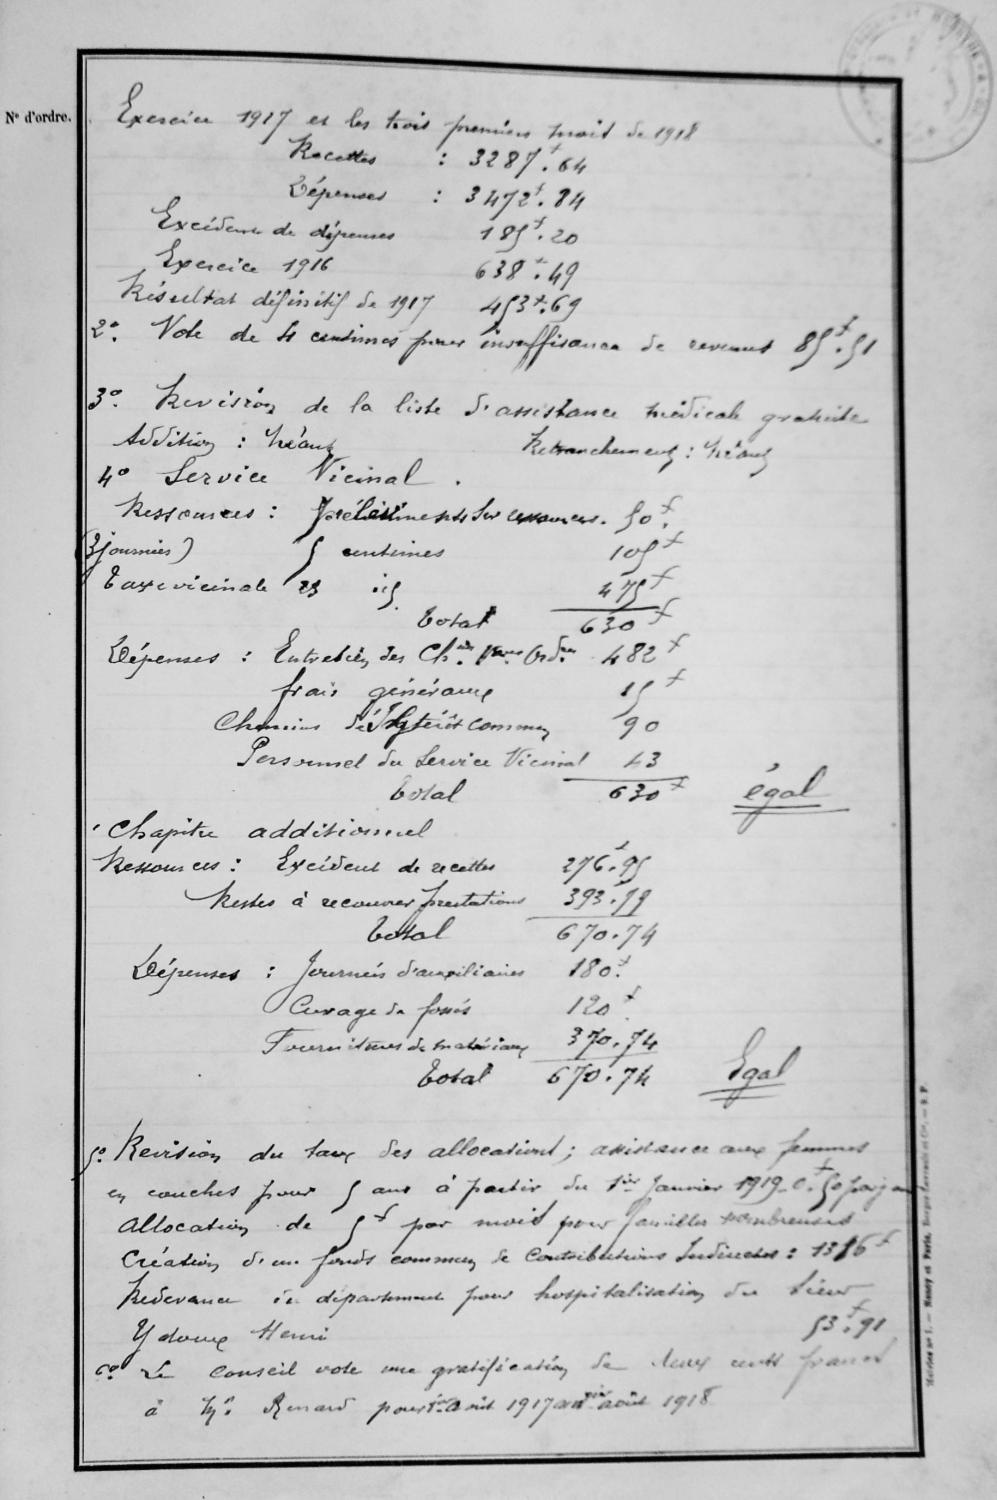 N° d'ordre.
Exercice 1917 et les trois premiers mois de 1918
Recettes : 3287f.64
Dépenses : 3472f.84
Excédent de dépenses 185f.20
Exercice 1916 638f.49
Résultat définitif de 1917 453f.69
2°. Vote de 4 centimes pour insuffisance de revenus 85f.51
3°. Revision de la liste d'assistance médicale gratuite
Addition : Néant Retranchement : Néant
4° Service Vicinal.
Ressources : Prélèvements sur ressources. 50f.
(3 journées) 5 centimes 105f
Taxe vicinale 23 id. 475f
Total 630f
Dépenses : Entretien des Ch.ins V.aux Ord.res 482f
frais généraux 15f
Chemins d'Intérêt commun 90
Personnel du Service Vicinal 43
Total 630f égal
Chapitre additionnel
Ressources : Excédent de recettes 276f.95
Restes à recouvrer prestations 393.79
Total 670.74
Dépenses : Journées d'auxiliaires 180f.
Curage de fossés 120f
Fournitures de matériaux 370.74
Total 670.74 Egal
5° Revision du taux des allocations ; assistance aux femmes
en couches pour 5 ans à partir du 1er Janvier 1919 0f.50 par jour
Allocation de 5f par mois pour familles nombreuses
Création d'un fonds commun de Contributions Indirectes : 1316f
Redevance du département pour hospitalisation du Sieur
Henri 53f.91
6° Le conseil vote une gratification de deux cents francs
à Mr. Renard pour 1er août 1917 au 1er août 1918